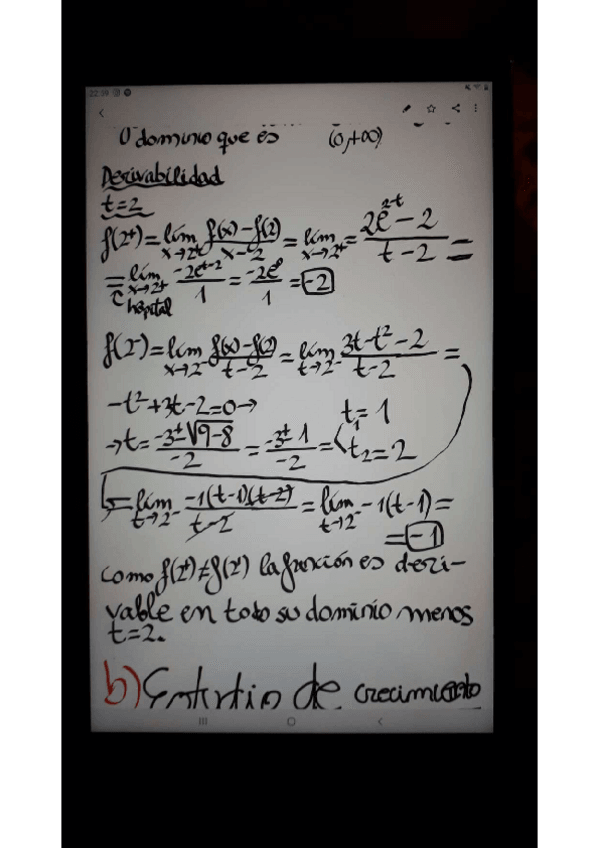 22:39
O dominio que es (0,+∞)
Derivabilidad
t=2
f(2⁺)=lím x→2⁺ f(x)-f(2)/x-2 = lím x→2⁺ = 2e^(2-t) - 2/t-2 =
= lím x→2⁺ -2e^(t-2)/1 = -2e⁰/1 = -2
hôpital
f(2⁻)=lím x→2⁻ f(x)-f(2)/t-2 = lím t→2⁻ 3t-t²-2/t-2 =
-t²+3t-2=0→ t=1
→t= -3±√9-8/-2 = -3±1/-2 = t₂=2
= lím t→2⁻ -1(t-1)(t-2)/t-2 = lím t→2⁻ -1(t-1)=
= -1
como f(2⁺)≠f(2⁻) la función es deri-
vable en todo su dominio menos
t=2.
b) de crecimiento